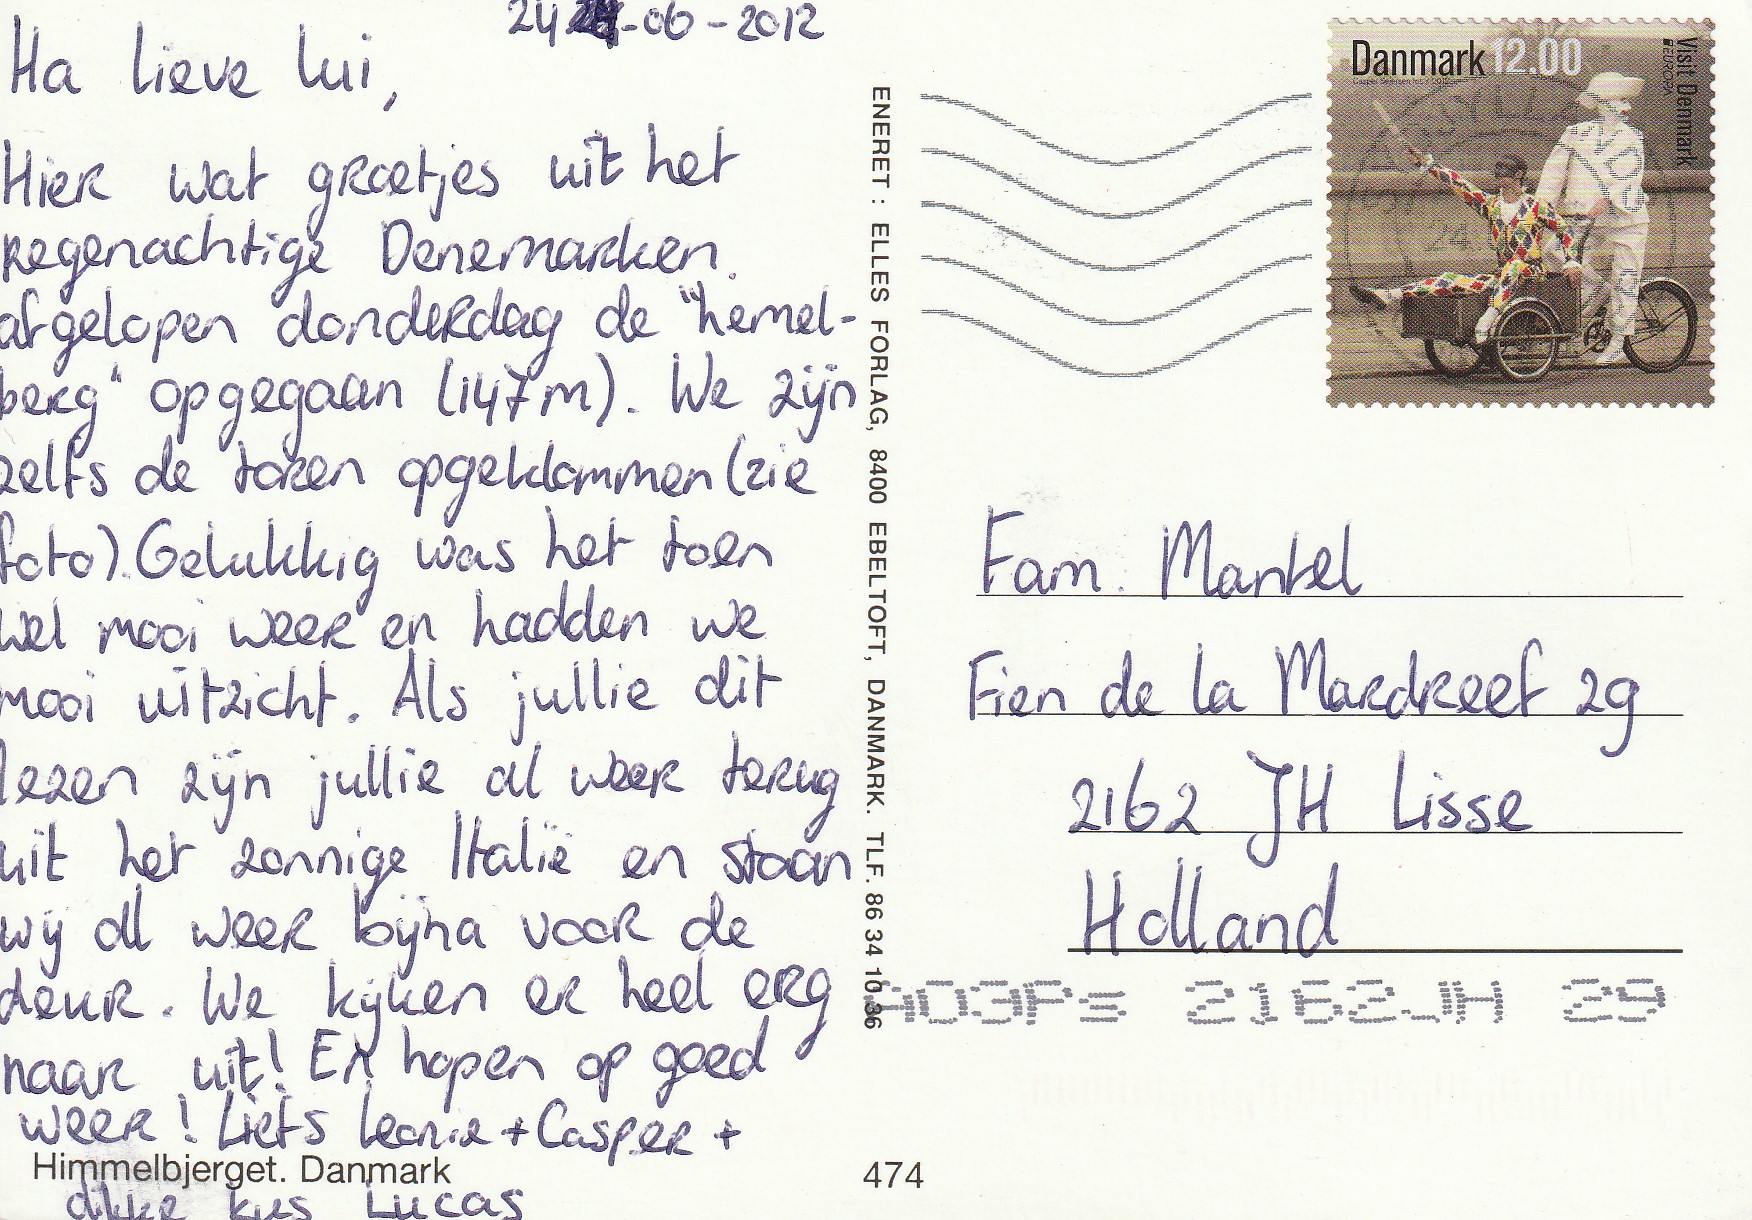 24 -06-2012
Ha lieve lui,
Hier wat groetjes uit het
regenachtige Denemarken.
afgelopen donderdag de "hemel-
berg" opgegaan (147m). We zijn
zelfs de toren opgeklommen (zie
foto). Gelukkig was het toen
wel mooi weer en hadden we
mooi uitzicht. Als jullie dit
lezen zijn jullie al weer terug
uit het zonnige Italië en staan
wij al weer bijna voor de
deur. We kijken er heel erg
naar uit! En hopen op goed
weer! Liefs Leonie + Casper +
Himmelbjerget. Danmark
dikke kus Lucas
ENERET: ELLES FORLAG, 8400 EBELTOFT, DANMARK. TLF. 86 34 10 36
474
Danmark 12.00
Visit Denmark
EUROPA
Fam. Mantel
Fien de la Mardreef 29
2162 JH Lisse
Holland
2162JH 29